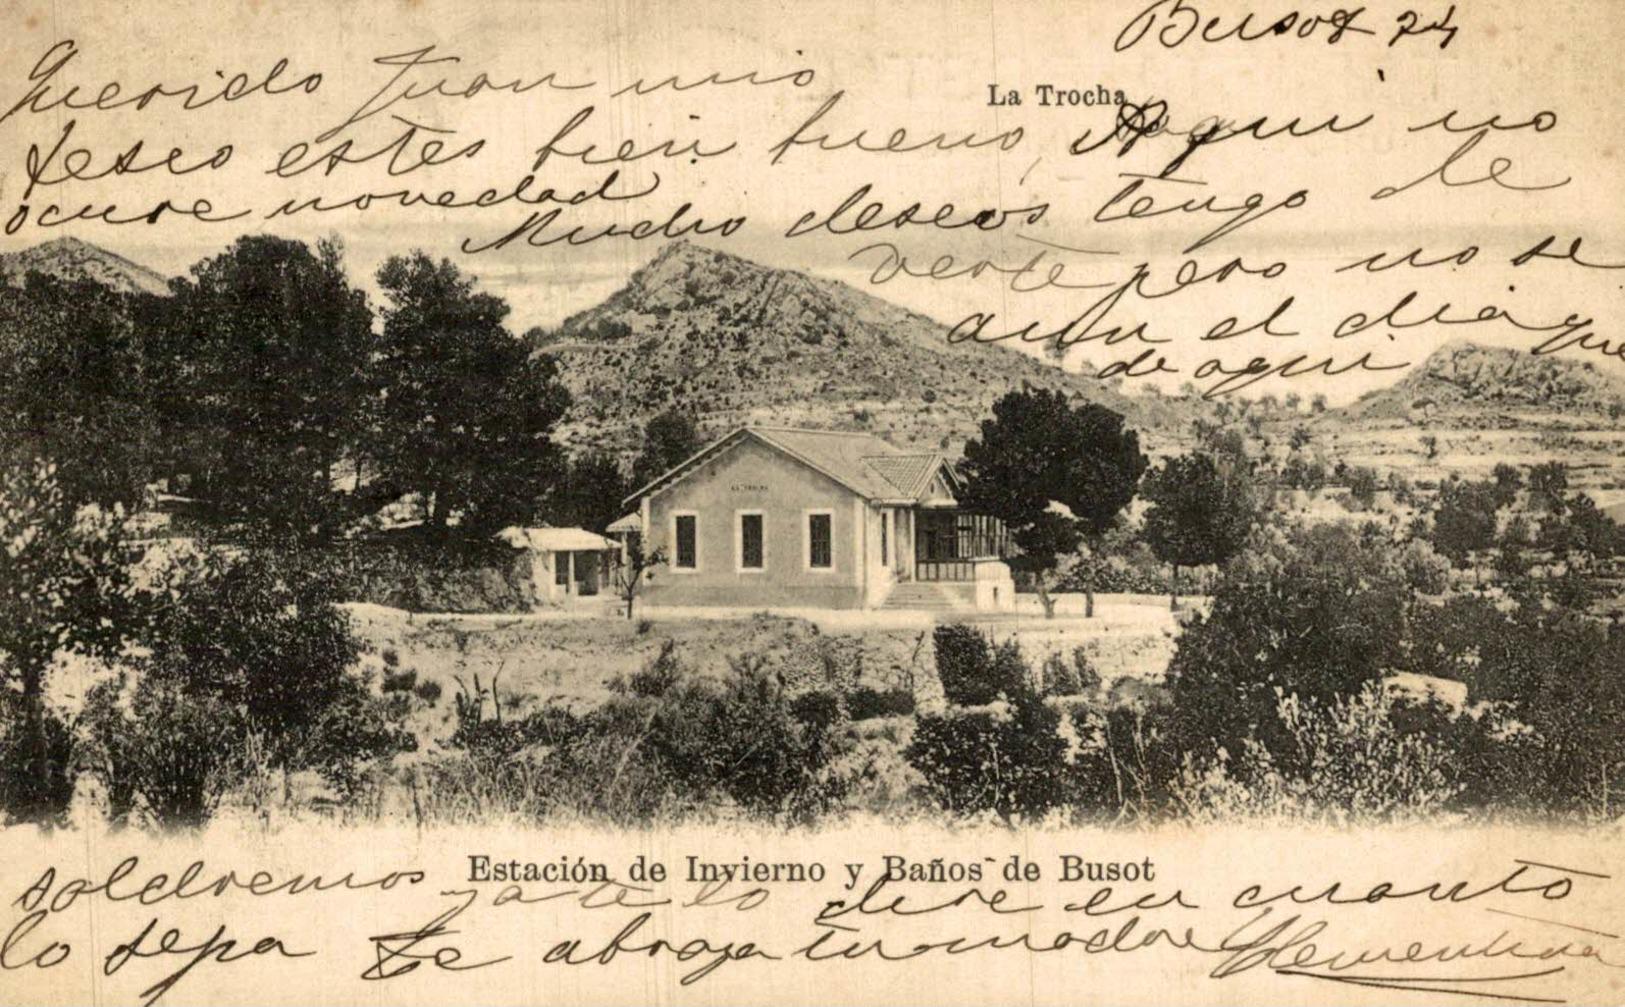 Busot 24
La Trocha
Querido Juan mio
deseo estes bien bueno, Aqui no
ocure novedad
Mucho deseos tengo de
verte pero no se
aun el dia que
de aqui
LA TROCHA
saldremos ya te lo dire en cuanto
Estación de Invierno y Baños de Busot
lo sepa te abraza tu madre Clementina